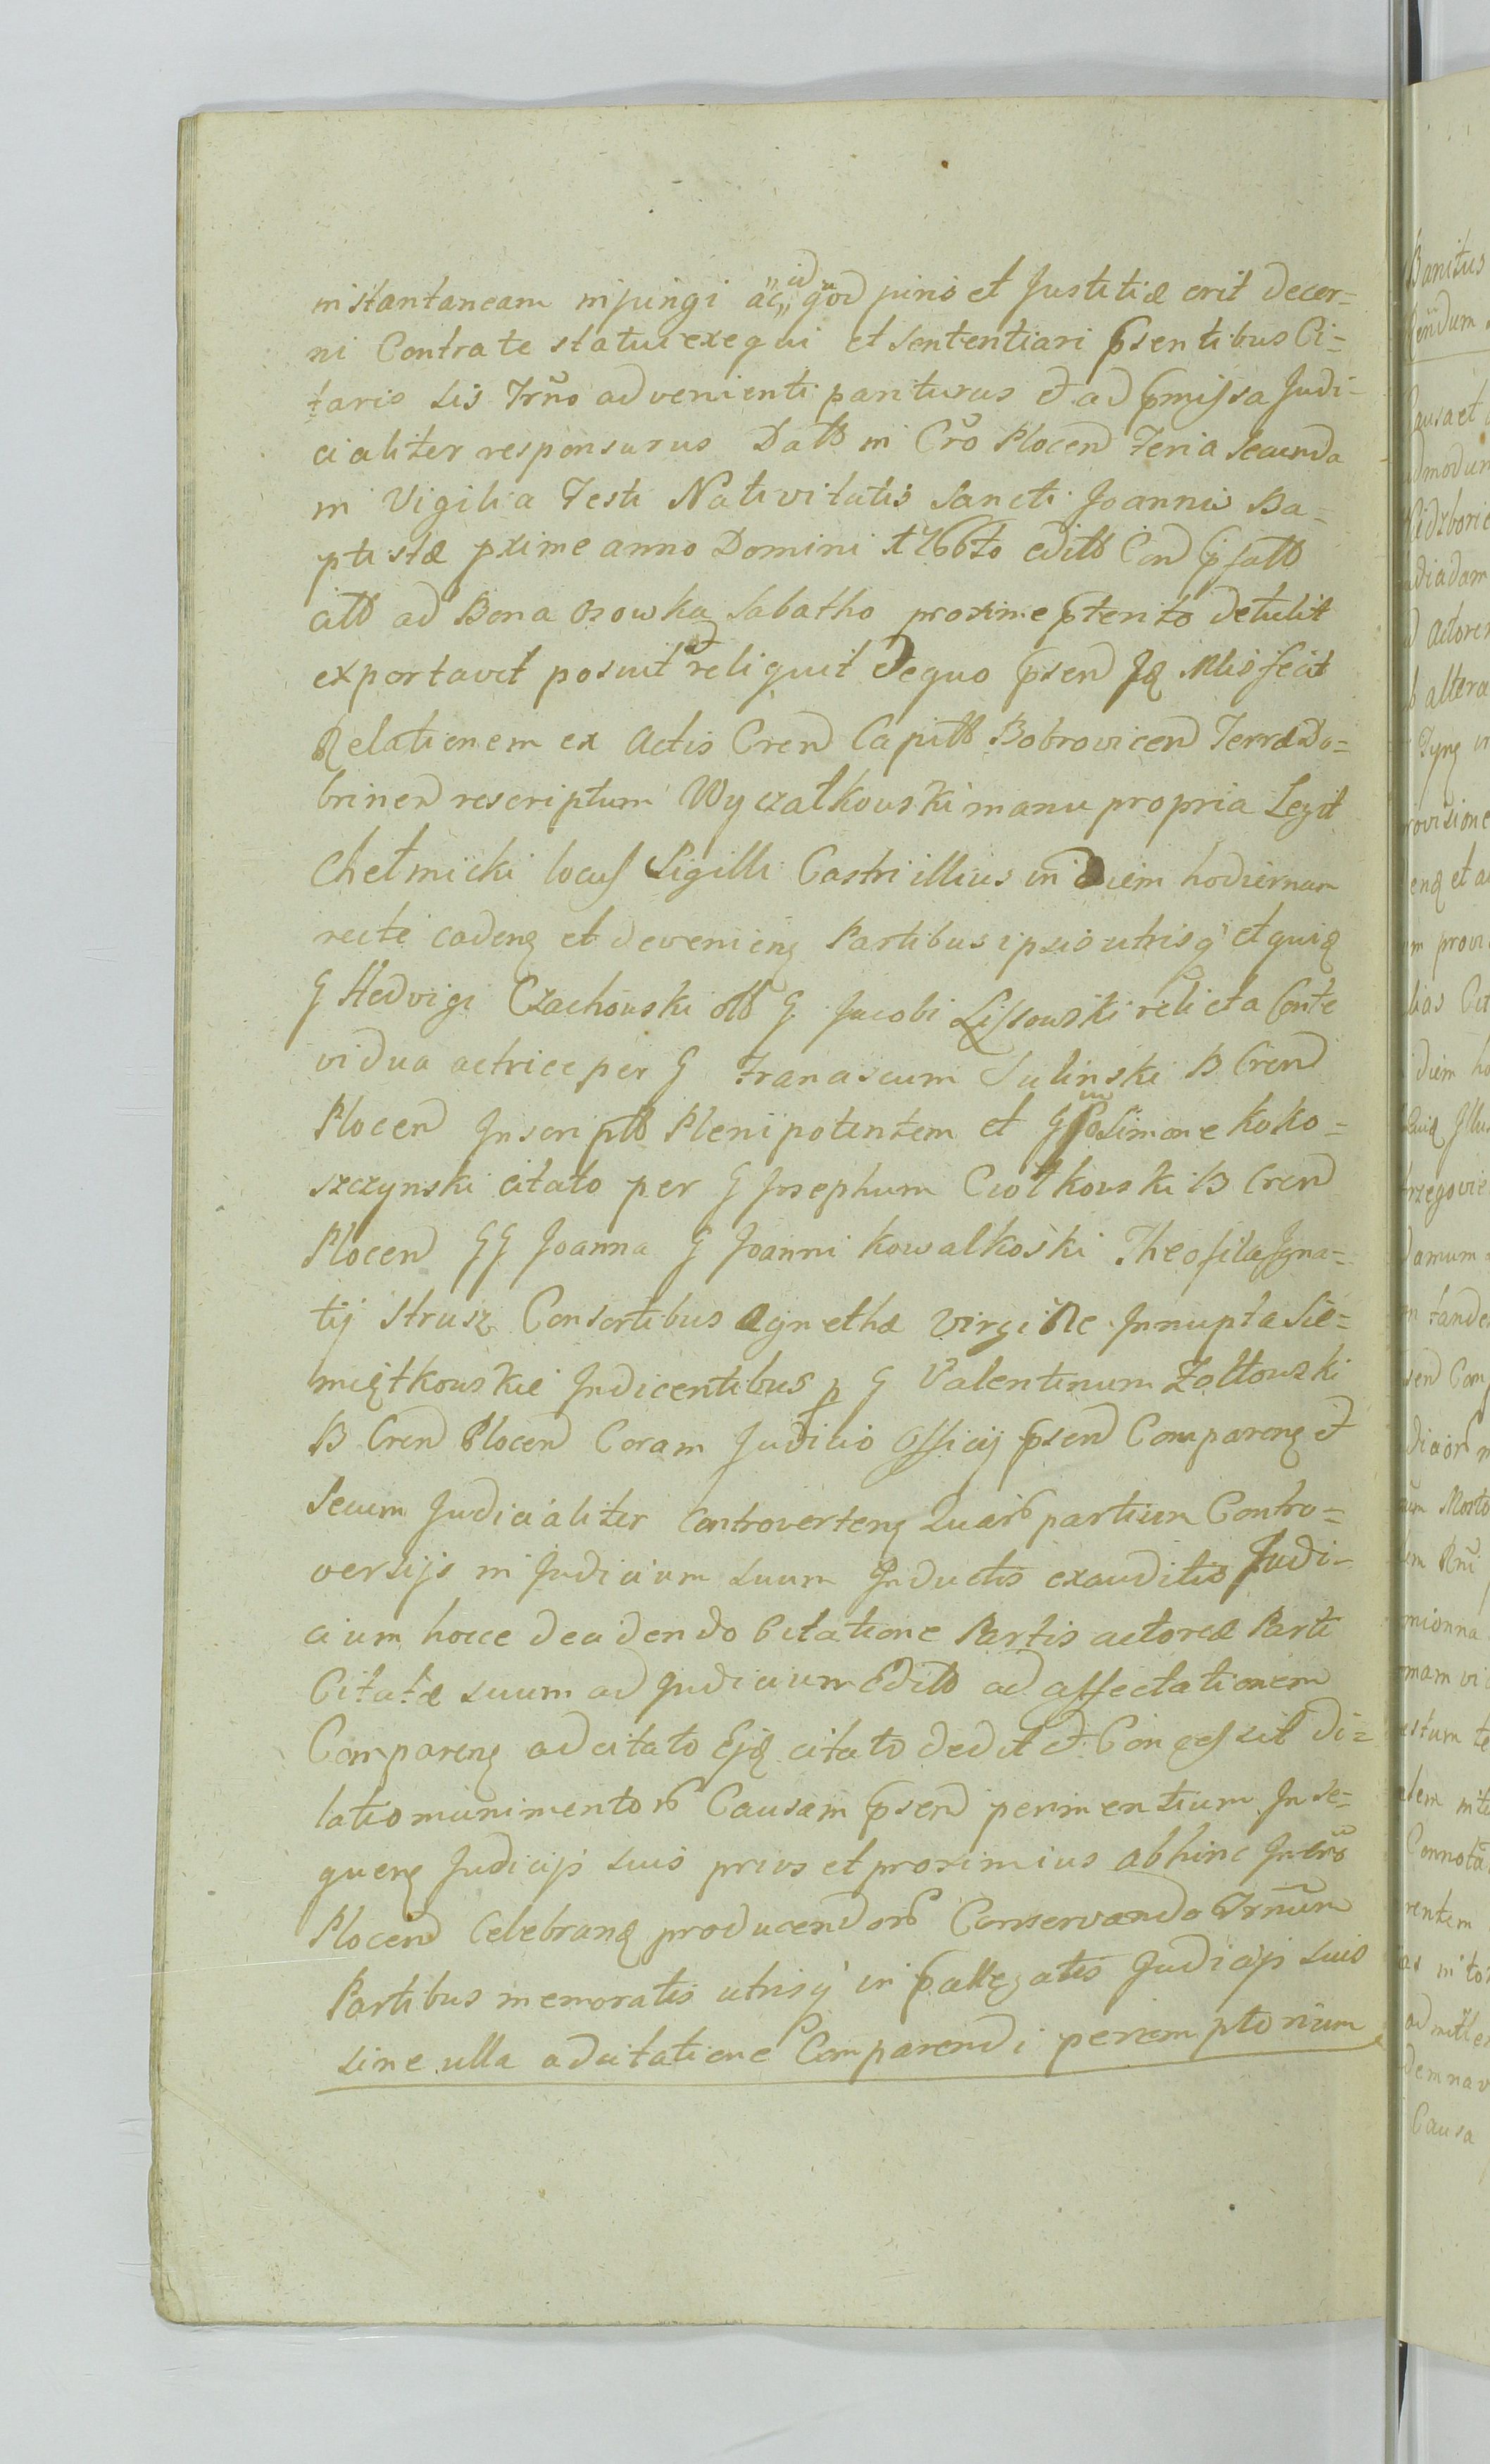 instantaneam injungi ac id qod juris et Justitiæ erit decer=
ni Contra te statui exequi et sententiari psentibus Ci=
taris sis Trño advenienti pariturus et ad pmissa Judi-
cialiter responsurus Datt in Cro Plocen Feria Secunda
in Vigilia Festi Nativitatis Sancti Joannis Ba=
ptistæ pxime anno Domini 1766to editt Con
citt ad Bona Osowka Sabatho proxime pterito detulit
exportavit posuit et reliquit de quo psen Jq Mlis fecit
Relationem ex Actis Cren Capitt Bobrovicen Terræ Do=
brinen rescriptum Wyczałkowski manu propria Legit
Chełmicki locus Sigilli Castri illius in diem hodiernam
recte caden et devenien Partibus ipsis utrisq et quiq
G Hedvigi Czachowski olb G Jacobi Lissowski relicta Conte
vidua actrice per G Franciscum Sulinski B Cren
Plocen Inscriptt Plenipotentem et G Simone Koko=
szczynski citato per G Josephum Ciołkowski B Cren
Plocen GG Joanna G Joanni Kowalkoski Theofila Igna=
tij Strusz Consortibus Agnetha Virgine Innupta Sie=
miętkowskie Indicentibus p G Valentinum Zołtowski
B Cren Plocen Coram Judicio Officij psen Comparen et
Secum Judicialiter Controverten Quarb partium Contro=
versijs in Judicium suum Inductis exauditis Judi-
cium hocce de edendo Citatione Partis actoreæ Parti
Citatæ suum ad Judicium editt ad affectationem
Comparen adcitato Ejq citato dedit et Congessit di=
latio munimentorb Causam psen perimentium Inse=
quen Judicijs suis prius et proximius abhinc In Cro
Plocen Celebran producendorb Conservando Trñum
Partibus memoratis utrisq in pallegatis Judicijs suis
sine ulla adcitatione Comparendi peremptorium